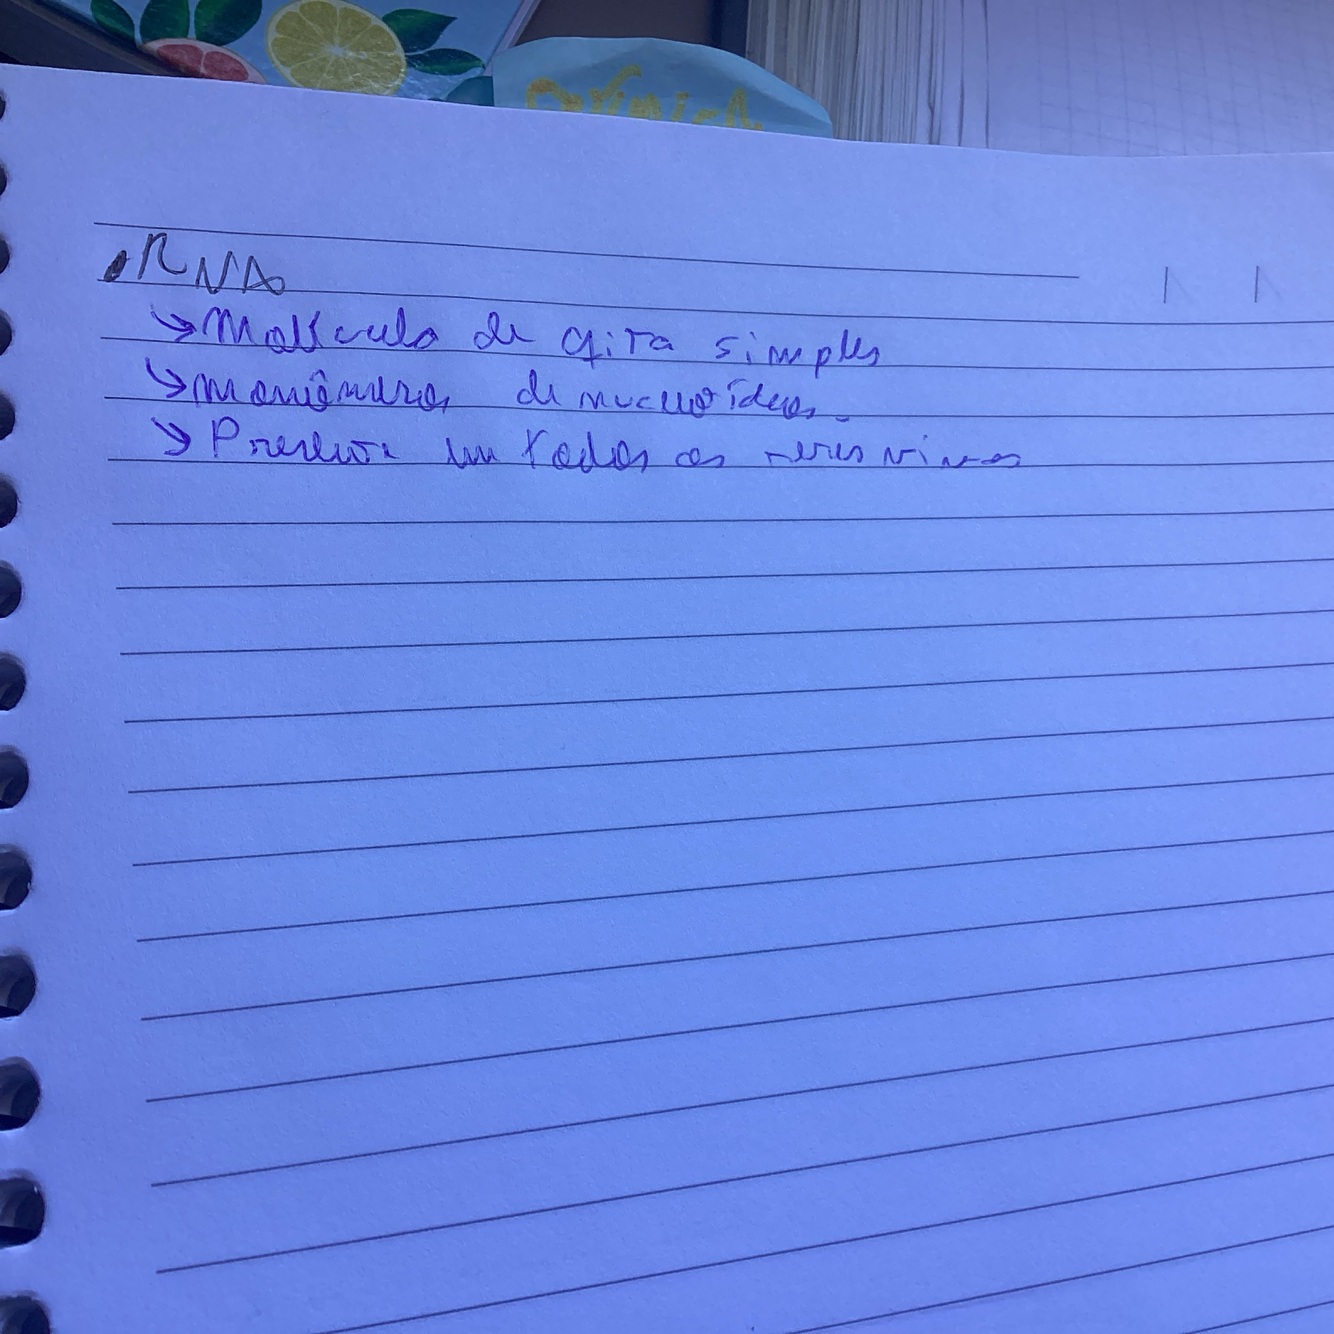 RNA
→ Molécula de fita simples
→ monômeros de nucleotídeos.
→ Presente em todos os seres vivos